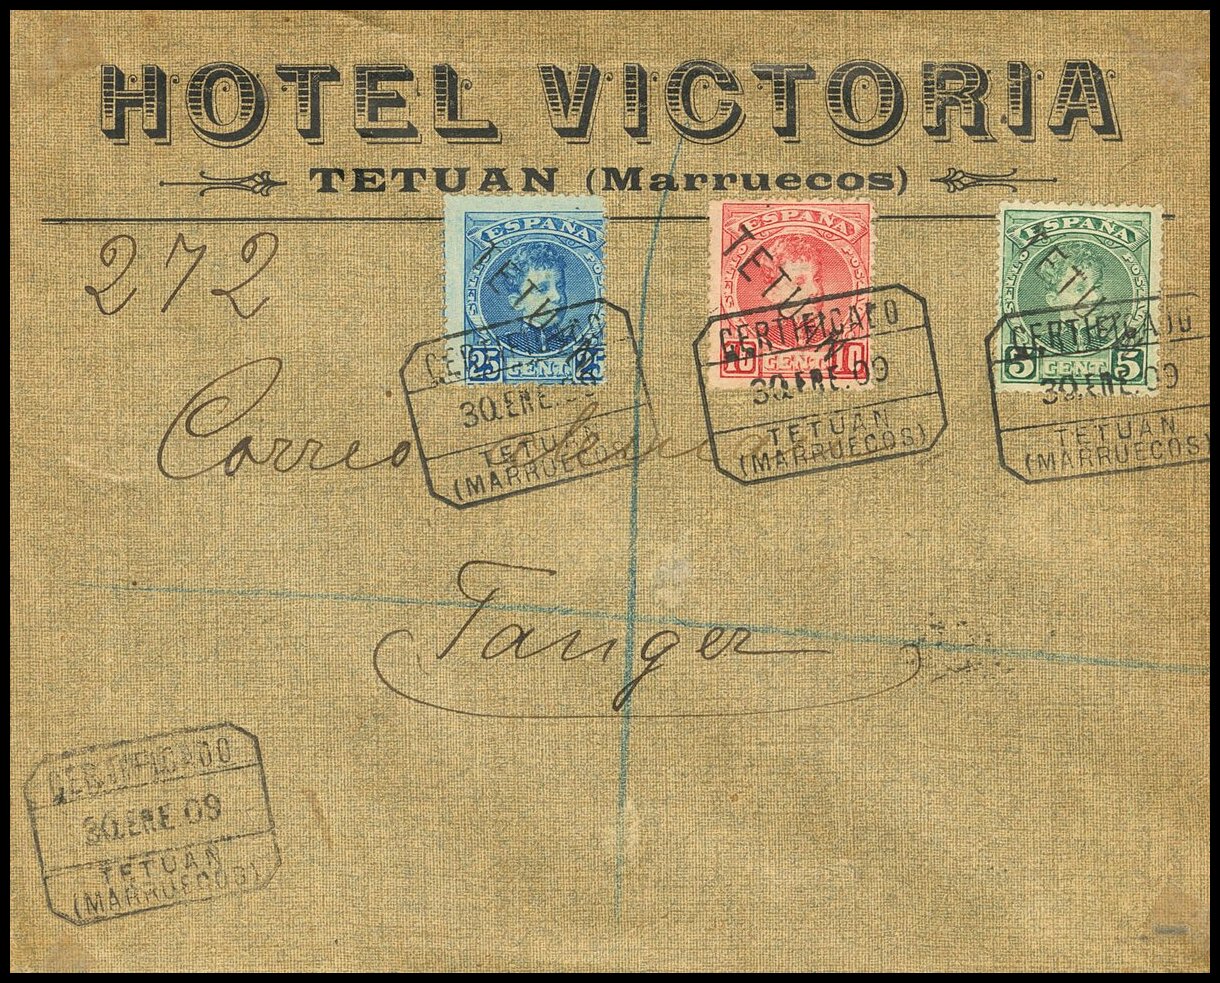 HOTEL VICTORIA
TETUAN (Marruecos)
272
ESPAÑA
TETUAN
25 CENT 25
ESPAÑA
TETUAN
10 CENT 10
ESPAÑA
TETUAN
5 CENT 5
CERTIFICADO
30.ENE.09
TETUAN
(MARRUECOS)
CERTIFICADO
30.ENE.09
TETUAN
(MARRUECOS)
CERTIFICADO
30.ENE.09
TETUAN
(MARRUECOS)
Correo
Tanger
CERTIFICADO
30.ENE 09
TETUAN
(MARRUECOS)